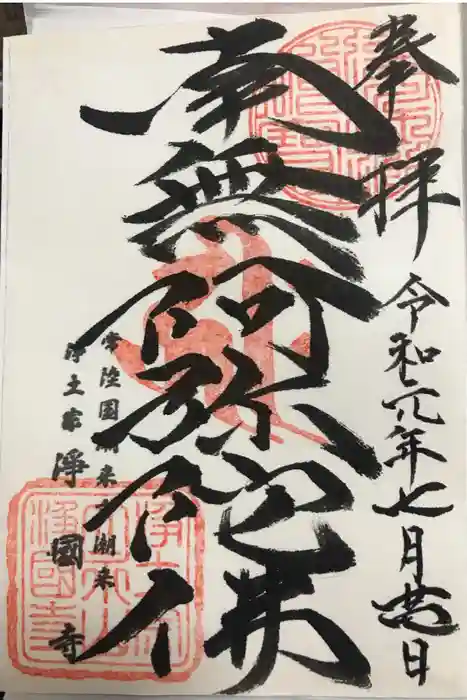 奉拝
令和元年七月廿日
南無阿弥陀佛
常陸国潮来 潮来
浄土宗 淨國寺